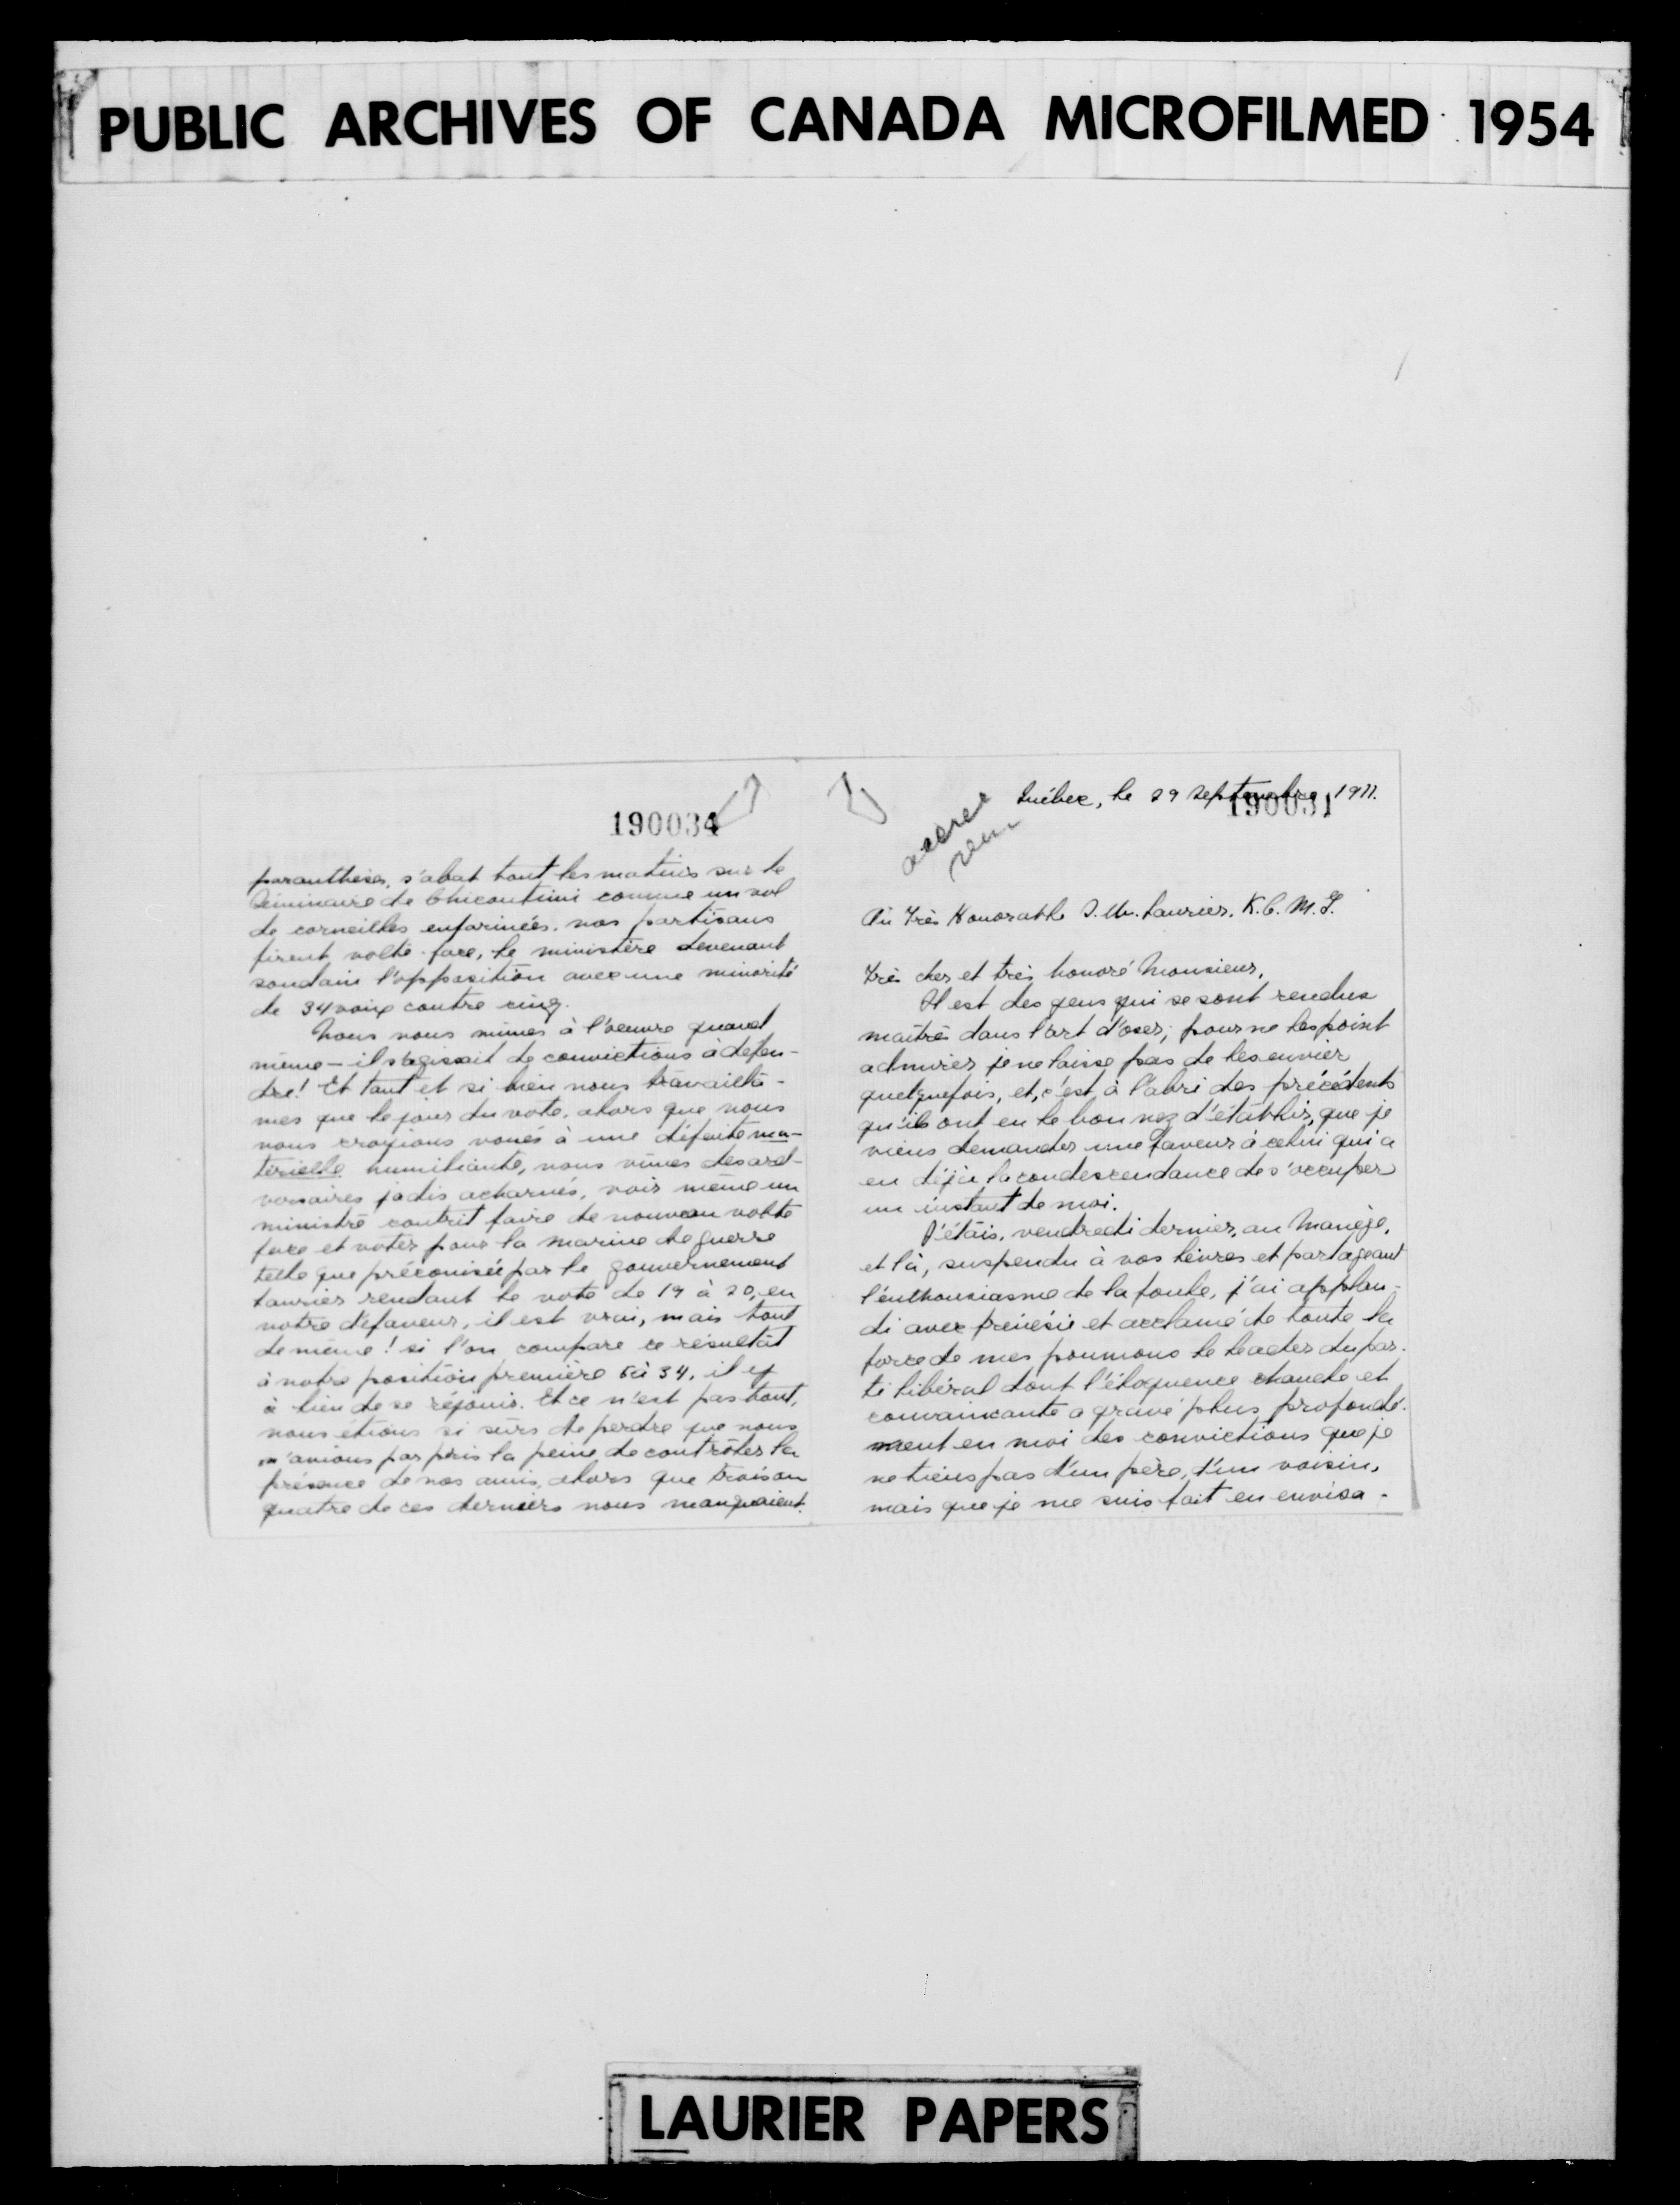 PUBLIC ARCHIVES OF CANADA MICROFILMED 1954
190034
paranthèses, s'abat tout les matins sur le
Séminaire de Chicoutimi comme un vol
de corneilles enfarinées. nos partisans
firent volte-face, le ministère devenant
soudain l'opposition avec une minorité
de 34 voix contre cinq.
Nous nous mîmes à l'oeuvre quand
même — il s'agissait de convictions à défen-
dre! Et tant et si bien nous travaillâ-
mes que le jour du vote, alors que nous
nous croyions voués à une défaite ma-
térielle humiliante, nous vîmes des ad-
versaires jadis acharnés, voir même un
ministre contrit faire de nouveau volte
face et voter pour la marine de guerre
telle que préconisée par le gouvernement
Laurier rendant le vote de 19 à 20, en
notre défaveur, il est vrai, mais tout
de même! si l'on compare ce résultat
à notre position première 5 à 34, il y
a lieu de se réjouir. Et ce n'est pas tout,
nous étions si sûrs de perdre que nous
n'avions pas pris la peine de contrôler la
présence de nos amis, alors que trois ou
quatre de ces derniers nous manquaient.
Québec, le 29 septembre 1911.
190031
Au Très Honorable S. W. Laurier. K.C.M.G.
Très cher et très honoré Monsieur,
Il est des gens qui se sont rendus
maîtres dans l'art d'oser; pour ne les point
admirer je ne laisse pas de les envier
quelquefois, et, c'est à l'abri des précédents
qu'ils ont eu le bon nez d'établir, que je
viens demander une faveur à celui qui a
eu déjà la condescendance de s'occuper
un instant de moi.
J'étais, vendredi dernier, au Manège,
et là, suspendu à vos lèvres et partageant
l'enthousiasme de la foule, j'ai applau-
di avec frénésie et acclamé de toute la
force de mes poumons le leader du par-
ti libéral dont l'éloquence chaude et
convaincante a gravé plus profondé-
ment en moi des convictions que je
ne tiens pas d'un père, d'un voisin,
mais que je me suis fait en envisa-
LAURIER PAPERS